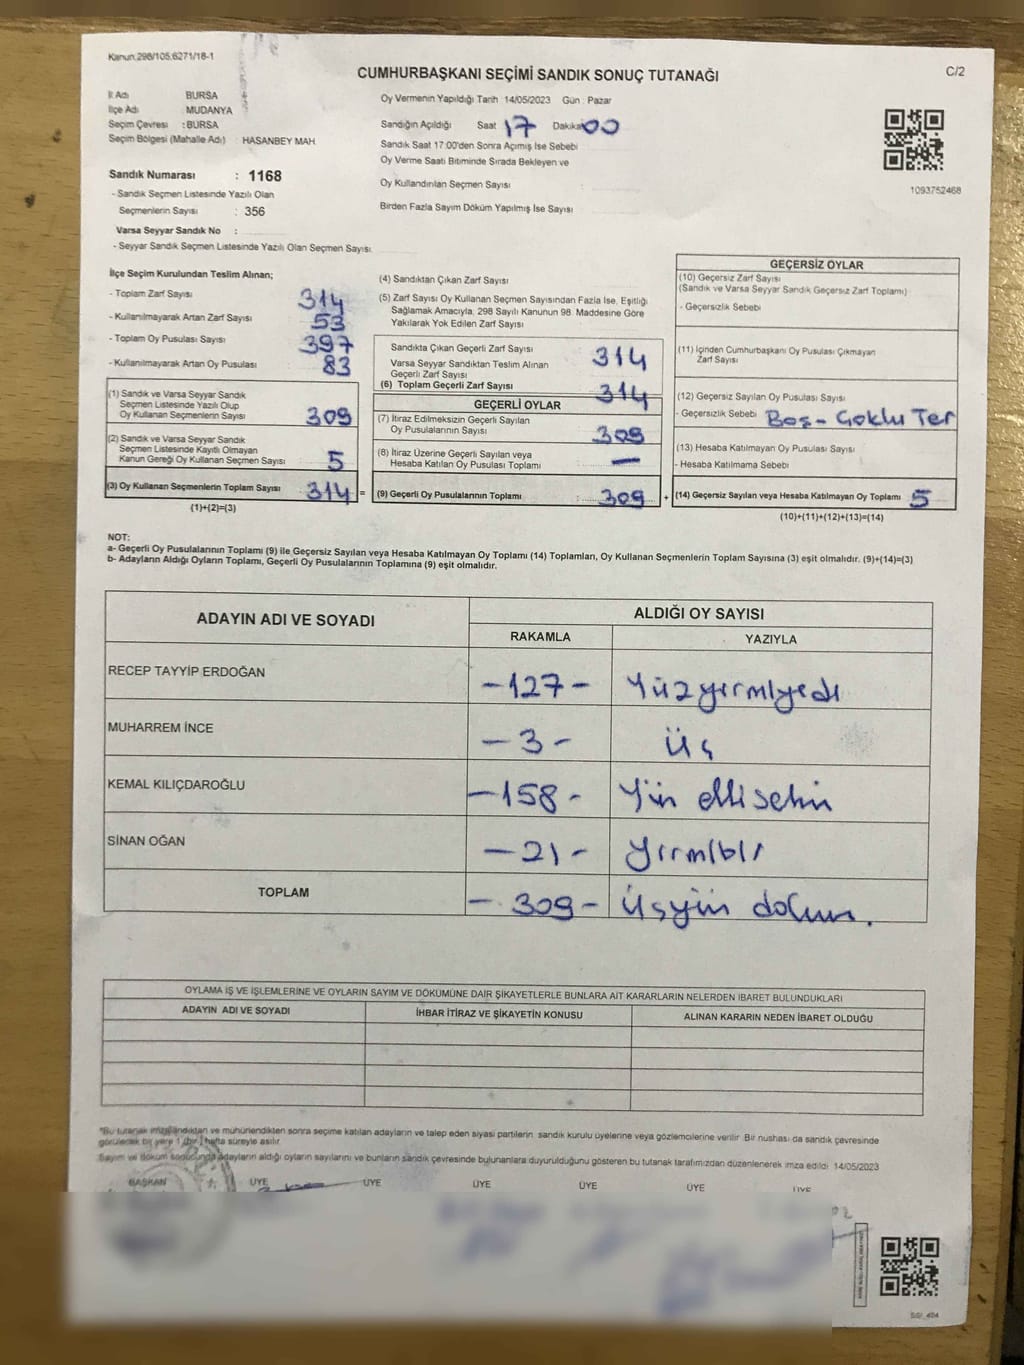 Kanun:298/105;6271/18-1
CUMHURBAŞKANI SEÇİMİ SANDIK SONUÇ TUTANAĞI
C/2
İl Adı BURSA
İlçe Adı MUDANYA
Seçim Çevresi : BURSA
Seçim Bölgesi (Mahalle Adı) : HASANBEY MAH
Sandık Numarası : 1168
- Sandık Seçmen Listesinde Yazılı Olan
Seçmenlerin Sayısı : 356
Varsa Seyyar Sandık No :
- Seyyar Sandık Seçmen Listesinde Yazılı Olan Seçmen Sayısı:
Oy Vermenin Yapıldığı Tarih 14/05/2023 Gün : Pazar
Sandığın Açıldığı Saat 17 Dakika 00
Sandık Saat 17:00'den Sonra Açımış İse Sebebi
Oy Verme Saati Bitiminde Sırada Bekleyen ve
Oy Kullandırılan Seçmen Sayısı
Birden Fazla Sayım Döküm Yapılmış İse Sayısı
1093752468
İlçe Seçim Kurulundan Teslim Alınan;
- Toplam Zarf Sayısı 314
- Kullanılmayarak Artan Zarf Sayısı 53
- Toplam Oy Pusulası Sayısı 397
- Kullanılmayarak Artan Oy Pusulası 83
(1) Sandık ve Varsa Seyyar Sandık
Seçmen Listesinde Yazılı Olup
Oy Kullanan Seçmenlerin Sayısı 309
(2) Sandık ve Varsa Seyyar Sandık
Seçmen Listesinde Kayıtlı Olmayan
Kanun Gereği Oy Kullanan Seçmen Sayısı 5
(3) Oy Kullanan Seçmenlerin Toplam Sayısı 314 =
(1)+(2)=(3)
(4) Sandıktan Çıkan Zarf Sayısı
(5) Zarf Sayısı Oy Kullanan Seçmen Sayısından Fazla İse, Eşitliği
Sağlamak Amacıyla, 298 Sayılı Kanunun 98. Maddesine Göre
Yakılarak Yok Edilen Zarf Sayısı
Sandıkta Çıkan Geçerli Zarf Sayısı 314
Varsa Seyyar Sandıktan Teslim Alınan
Geçerli Zarf Sayısı
(6) Toplam Geçerli Zarf Sayısı 314
GEÇERLİ OYLAR
(7) İtiraz Edilmeksizin Geçerli Sayılan
Oy Pusulalarının Sayısı 309
(8) İtiraz Üzerine Geçerli Sayılan veya
Hesaba Katılan Oy Pusulası Toplamı —
(9) Geçerli Oy Pusulalarının Toplamı : 309 +
GEÇERSİZ OYLAR
(10) Geçersiz Zarf Sayısı
(Sandık ve Varsa Seyyar Sandık Geçersiz Zarf Toplamı)
- Geçersizlik Sebebi
(11) İçinden Cumhurbaşkanı Oy Pusulası Çıkmayan
Zarf Sayısı
(12) Geçersiz Sayılan Oy Pusulası Sayısı
- Geçersizlik Sebebi Boş - Çoklu Ter
(13) Hesaba Katılmayan Oy Pusulası Sayısı
- Hesaba Katılmama Sebebi
(14) Geçersiz Sayılan veya Hesaba Katılmayan Oy Toplamı 5
(10)+(11)+(12)+(13)=(14)
NOT:
a- Geçerli Oy Pusulalarının Toplamı (9) ile Geçersiz Sayılan veya Hesaba Katılmayan Oy Toplamı (14) Toplamları, Oy Kullanan Seçmenlerin Toplam Sayısına (3) eşit olmalıdır. (9)+(14)=(3)
b- Adayların Aldığı Oyların Toplamı, Geçerli Oy Pusulalarının Toplamına (9) eşit olmalıdır.
ADAYIN ADI VE SOYADI
ALDIĞI OY SAYISI
RAKAMLA YAZIYLA
RECEP TAYYİP ERDOĞAN -127- Yüzyirmiyedi
MUHARREM İNCE -3- üç
KEMAL KILIÇDAROĞLU -158- Yüz ellisekiz
SİNAN OĞAN -21- yirmibir
TOPLAM -309- üçyüz dokuz.
OYLAMA İŞ VE İŞLEMLERİNE VE OYLARIN SAYIM VE DÖKÜMÜNE DAİR ŞİKAYETLERLE BUNLARA AİT KARARLARIN NELERDEN İBARET BULUNDUKLARI
ADAYIN ADI VE SOYADI İHBAR İTİRAZ VE ŞİKAYETİN KONUSU ALINAN KARARIN NEDEN İBARET OLDUĞU
*Bu tutanak imzalandıktan ve mühürlendikten sonra seçime katılan adayların ve talep eden siyasi partilerin sandık kurulu üyelerine veya gözlemcilerine verilir. Bir nushası da sandık çevresinde
görülecek bir yere 1 (bir) hafta süreyle asılır.
Sayım ve döküm sonucunda adayların aldığı oyların sayılarını ve bunların sandık çevresinde bulunanlara duyurulduğunu gösteren bu tutanak tarafımızdan düzenlenerek imza edildi. 14/05/2023
BAŞKAN ÜYE ÜYE ÜYE ÜYE ÜYE ÜYE